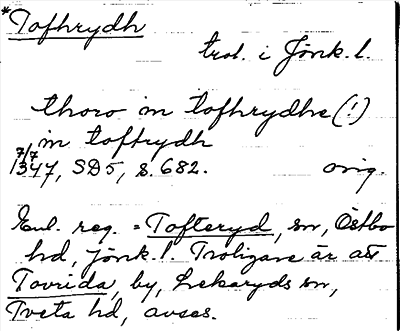 *Tofhrydh
trol. i Jönk.l.
thoro in tofhrydhe (!)
in toftrydh
7/7
1347, SD5, s. 682. orig.
Enl. reg. = Tofteryd, sn, Östbo
hd, Jönk.l. Troligare är att
Tovrida, by, Lekaryds sn,
Tveta hd, avses.